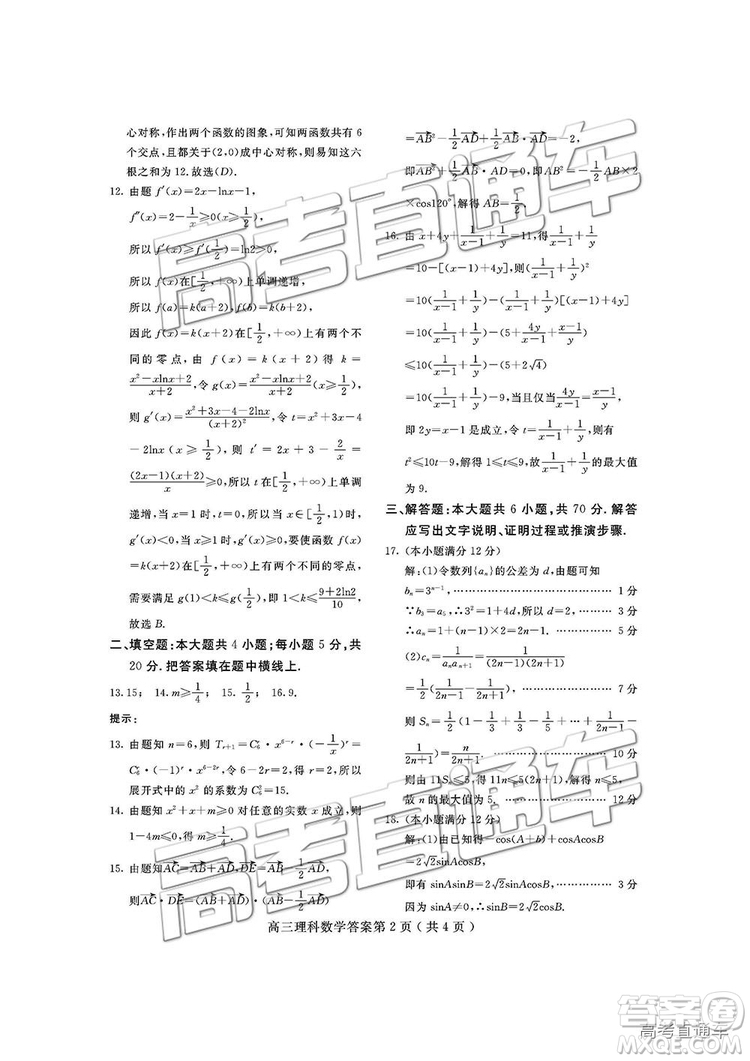 心对称,作出两个函数的图象,可知两函数共有 6
个交点,且都关于(2,0)成中心对称,则易知这六
根之和为 12.故选(D).
12. 由题 f′(x)=2x-lnx-1,
f″(x)=2-1/x≥0(x≥1/2),
所以 f′(x)≥f′(1/2)=ln2>0,
所以 f(x)在[1/2,+∞)上单调递增,
所以 f(a)=k(a+2),f(b)=k(b+2),
因此 f(x)=k(x+2)在[1/2,+∞)上有两个不
同的零点,由 f(x)=k(x+2)得 k=
(x²-xlnx+2)/(x+2),令 g(x)=(x²-xlnx+2)/(x+2)(x≥1/2),
则 g′(x)=(x²+3x-4-2lnx)/(x+2)²,令 t=x²+3x-4
-2lnx(x≥1/2),则 t′=2x+3-2/x=
(2x-1)(x+2)/x≥0,所以 t 在[1/2,+∞)上单调
递增,当 x=1 时,t=0,所以当 x∈[1/2,1)时,
g′(x)<0,当 x>1 时,g′(x)>0,
要使函数 f(x)=k(x+2)在[1/2,+∞)上有两个不同的零点,
需要满足 g(1)<k≤g(1/2),即 1<k≤(9+2ln2)/10,
故选 B.
二、填空题:本大题共 4 小题;每小题 5 分,共
20 分.把答案填在题中横线上.
13.15; 14.m≥1/4; 15.1/2; 16.9.
提示:
13. 由题知 n=6,则 Tᵣ₊₁=C₆ʳ·x⁶⁻ʳ·(-1/x)ʳ=
C₆ʳ·(-1)ʳ·x⁶⁻²ʳ,令 6-2r=2,r=2,所以
展开式中的 x² 的系数为 C₆²=15.
14. 由题知 x²+x+m≥0 对任意的实数 x 成立,则
1-4m≤0,得 m≥1/4.
15. 由题知AC=AB+AD,DE=AB-1/2AD,
则AC·DE=(AB+AD)·(AB-1/2AD)
=AB²-1/2AD²+1/2AB·AD=-2,
即AB²+1/2AB·AD=0,即 AB²-1/2AB×2
×cos120°,解得 AB=1/2.
16. 由 x+4y+1/(x-1)+1/y=11,得1/(x-1)+1/y
=10-[(x-1)+4y],则(1/(x-1)+1/y)²
=10(1/(x-1)+1/y)-(1/(x-1)+1/y)[(x-1)+4y]
=10(1/(x-1)+1/y)-(5+4y/(x-1)+(x-1)/y)
≤10(1/(x-1)+1/y)-(5+2√4)
=10(1/(x-1)+1/y)-9,当且仅当4y/(x-1)=(x-1)/y,
即 2y=x-1 是成立,令 t=1/(x-1)+1/y,则有
t²≤10t-9,解得 1≤t≤9,故1/(x-1)+1/y的最大值
为 9.
三、解答题:本大题共 6 小题,共 70 分.解答
应写出文字说明、证明过程或推演步骤.
17. (本小题满分 12 分)
解:(1)令数列{aₙ}的公差为 d,由题可知
bₙ=3ⁿ⁻¹,…………………………… 1 分
∵b₃=a₅,∴3²=1+4d,所以 d=2,…… 3 分
∴aₙ=1+(n-1)·2=2n-1.………… 5 分
(2)cₙ=1/(aₙaₙ₊₁)=1/((2n-1)(2n+1))
=1/2(1/(2n-1)-1/(2n+1)),………………… 7 分
则 Sₙ=1/2(1-1/3+1/3-1/5+…+1/(2n-1)
-1/(2n+1))=n/(2n+1).………………… 10 分
所以由 11Sₙ≤5,得 11n≤5(2n+1),解得 n≤5,
故 n 的最大值为 5.………………… 12 分
18. (本小题满分 12 分)
解:(1)由已知得-cos(A+b)+cosAcosB
=2√2sinAcosB,
即有 sinAsinB=2√2sinAcosB,…… 3 分
因为 sinA≠0,∴sinB=2√2cosB.
高三理科数学答案第 2 页(共 4 页)
高考直通车
高考直通车
答案圈
MXQE.COM
高考直通车